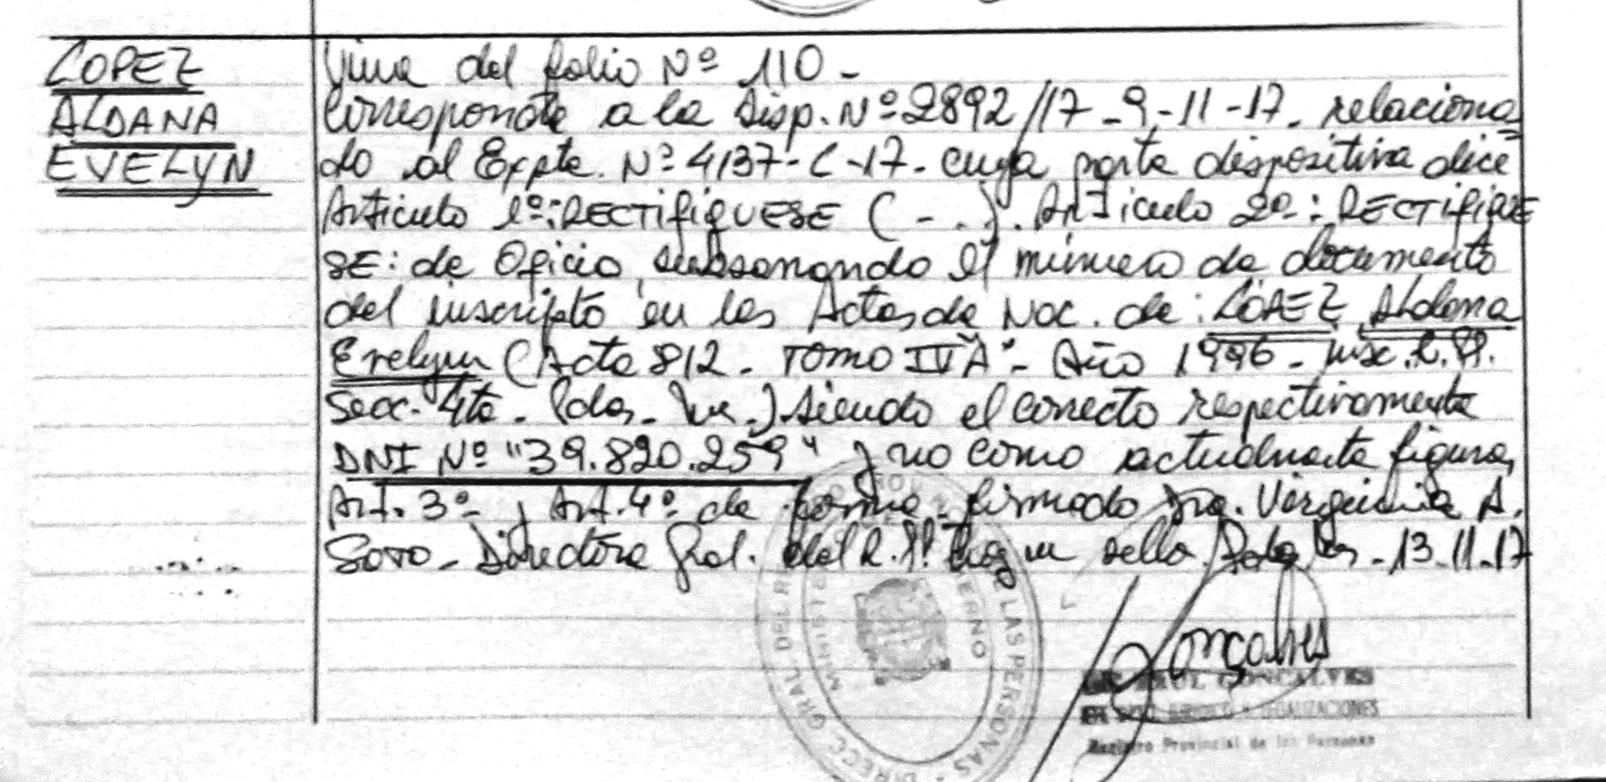 LOPEZ
ALDANA
EVELYN
Viene del folio Nº 110 -
Corresponde a la Disp. Nº 2892/17 - 9-11-17. relaciona
do al Expte. Nº 4137-L-17. cuya parte dispositiva dice
Articulo 1º: RECTIFIQUESE (-..). Articulo 2º: RECTIFIQUE
SE: de Oficio, subsanando el número de documento
del inscripto en las Actas de Nac. de: LÓPEZ, Aldana
Evelyn (Acta 812 - TOMO IV"A" - Año 1996 -
Secc. 4ta - siendo el correcto respectivamente
DNI Nº "39.820.259" y no como actualmente figura,
Art. 3º y Art. 4º de forma - firmado A.
SOTO - Directora Gral. del R.P. sello 13.11.17
Gonçalves
DIRECC. GRAL. DEL REG LAS PERSONAS
MINISTE ERNO
RAUL GONCALVES
LEGALIZACIONES
Registro Provincial de las Personas